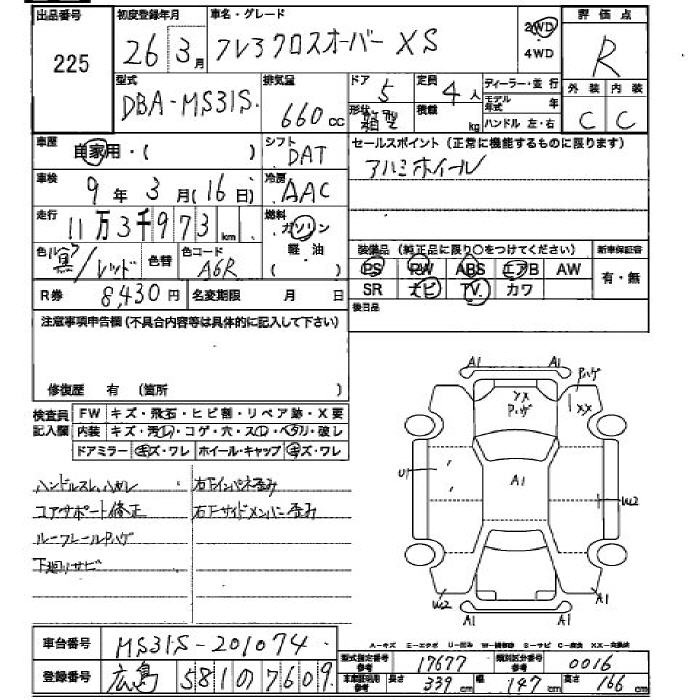 出品番号 225
初度登録年月 26年 3月
車名・グレード フレアクロスオーバー XS
2WD 4WD
評価点 R
外装 C 内装 C
型式 DBA-MS31S
排気量 660cc
ドア 5 形状
定員 4人 積載 kg
ディーラー・並行
モデル年式 年
ハンドル 左・右
車歴 自家用・( )
シフト DAT
セールスポイント (正常に機能するものに限ります)
アルミホイール
車検 9年 3月(16日)
冷房 AAC
走行 11万3千973km
燃料 ガソリン 軽油 ( )
色 黒/レッド 色替
色コード A6R
装備品 (純正品に限り○をつけてください) 新車保証書
PS PW ABS エアB AW 有・無
SR ナビ TV カワ
R券 8,430円 名変期限 月 日
後日品
注意事項申告欄(不具合内容等は具体的に記入して下さい)
修復歴 有 (箇所 )
検査員記入欄
FW キズ・飛石・ヒビ割・リペア跡・X要
内装 キズ・汚レ・コゲ・穴・スレ・ヘタリ・破レ
ドアミラー キズ・ワレ ホイール・キャップ キズ・ワレ
ハンドルスレ、ハガレ
コアサポート修正
ルーフレールPハゲ
下廻りサビ
右Fインパネ歪み
右Fサイドメンバー歪み
A1 A1
Pハゲ
XX
YX
Pハゲ
U1
A1
W2
W2
A1
A1
A-キズ E-エクボ U-凹み W-補修跡 S-サビ C-腐食 XX-交換済
車台番号 MS31S-201074
登録番号 広島 581の7609
型式指定番号 参考 17677
類別区分番号 参考 0016
長さ 339cm 幅 147cm 高さ 166cm